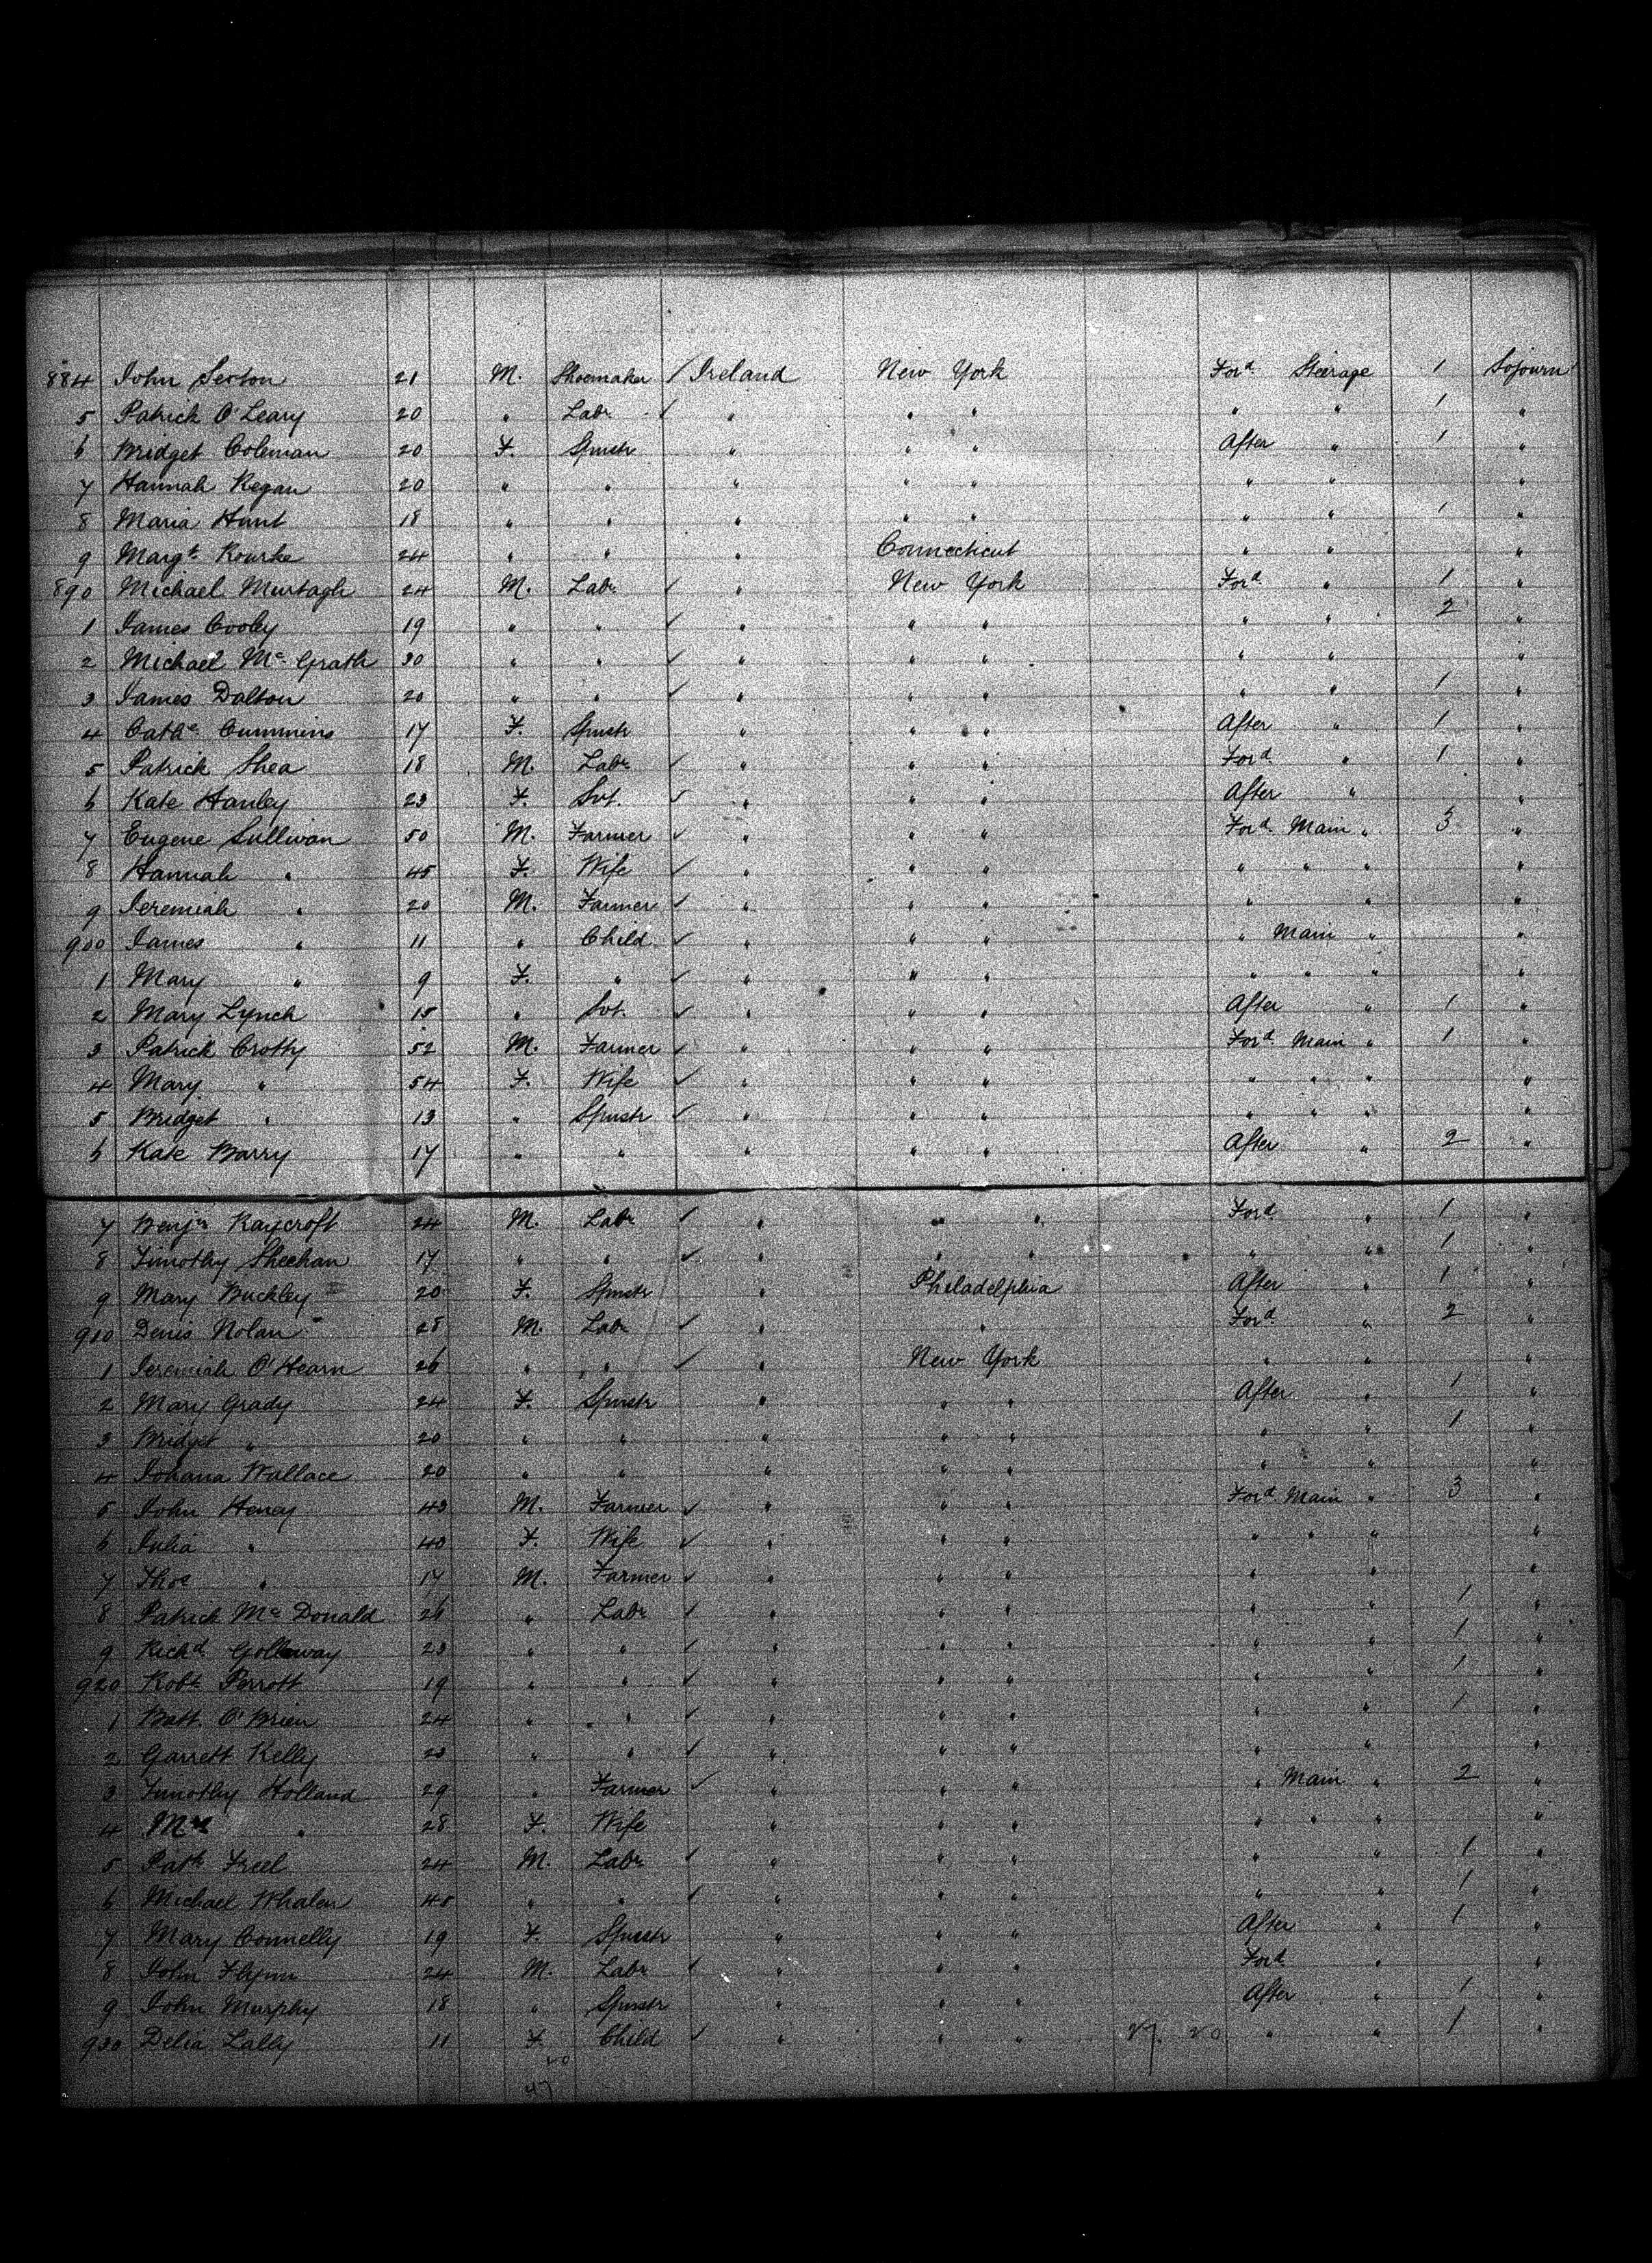 884 John Sexton 21 M. Shoemaker ✓ Ireland New York Ford. Steerage 1 Sojourn
5 Patrick O'Leary 20 " Labr. ✓ " " " " " 1 "
6 Bridget Coleman 20 F. Spinstr " " " After " 1 "
7 Hannah Regan 20 " " " " " " " "
8 Maria Hunt 18 " " " " " " " 1 "
9 Margt. Rourke 24 " " " Connecticut " " "
890 Michael Murtagh 24 M. Labr. ✓ " New York Ford. " 1 "
1 James Cooley 19 " " ✓ " " " " " 2 "
2 Michael Mc. Grath 30 " " ✓ " " " " " "
3 James Dalton 20 " " ✓ " " " " " 1 "
4 Cathe. Cummins 17 F. Spinstr " " " After " 1 "
5 Patrick Shea 18 M. Labr ✓ " " " Ford. " 1 "
6 Kate Hanley 23 F. Svt. ✓ " " " After " "
7 Eugene Sullivan 50 M. Farmer ✓ " " " Ford. Main " 3 "
8 Hannah " 45 F. Wife ✓ " " " " " " "
9 Jeremiah " 20 M. Farmer ✓ " " " " " "
900 James " 11 " Child. ✓ " " " " Main " "
1 Mary " 9 F. " ✓ " " " " " " "
2 Mary Lynch 15 " Svt. ✓ " " " After " 1 "
3 Patrick Crotty 52 M. Farmer ✓ " " " Ford. Main " 1 "
4 Mary " 54 F. Wife ✓ " " " " " " "
5 Bridget " 13 " Spinstr ✓ " " " " " " "
6 Kate Barry 17 " " " " " After " 2 "
7 Benjn Raycroft 24 M. Labr ✓ " " " Ford. " 1 "
8 Timothy Sheehan 17 " " ✓ " " " " " 1 "
9 Mary Buckley 20 F. Spinstr " Philadelphia After " 1 "
910 Denis Nolan 28 M. Labr ✓ " " Ford. " 2 "
1 Jeremiah O'Hearn 26 " " ✓ " New York " " "
2 Mary Grady 24 F. Spinstr " " " After " 1 "
3 Bridget " 20 " " " " " " " 1 "
4 Johana Wallace 20 " " " " " " " "
5 John Heney 43 M. Farmer ✓ " " " Ford. Main " 3 "
6 Julia " 40 F. Wife ✓ " " " " " " "
7 Thos " 17 M. Farmer ✓ " " " " " "
8 Patrick Mc Donald 26 " Labr ✓ " " " " " 1 "
9 Richd. Golloway 23 " " ✓ " " " " " 1 "
920 Robt. Perrott 19 " " ✓ " " " " " 1 "
1 Batt. O'Brien 24 " " ✓ " " " " " 1 "
2 Garrett Kelly 23 " " ✓ " " " " " "
3 Timothy Holland 29 " Farmer ✓ " " " " Main " 2 "
4 Mrs " 28 F. Wife " " " " " " "
5 Patk Freel 24 M. Labr ✓ " " " " " 1 "
6 Michael Whalen 45 " " ✓ " " " " " 1 "
7 Mary Connelly 19 F. Spinstr " " " After " 1 "
8 John Flynn 24 M. Labr ✓ " " " Ford. " "
9 John Murphy 18 " Spinstr " " " After " 1 "
930 Delia Lally 11 F. Child ✓ " " " 27. 20 " " 1 "
20
47